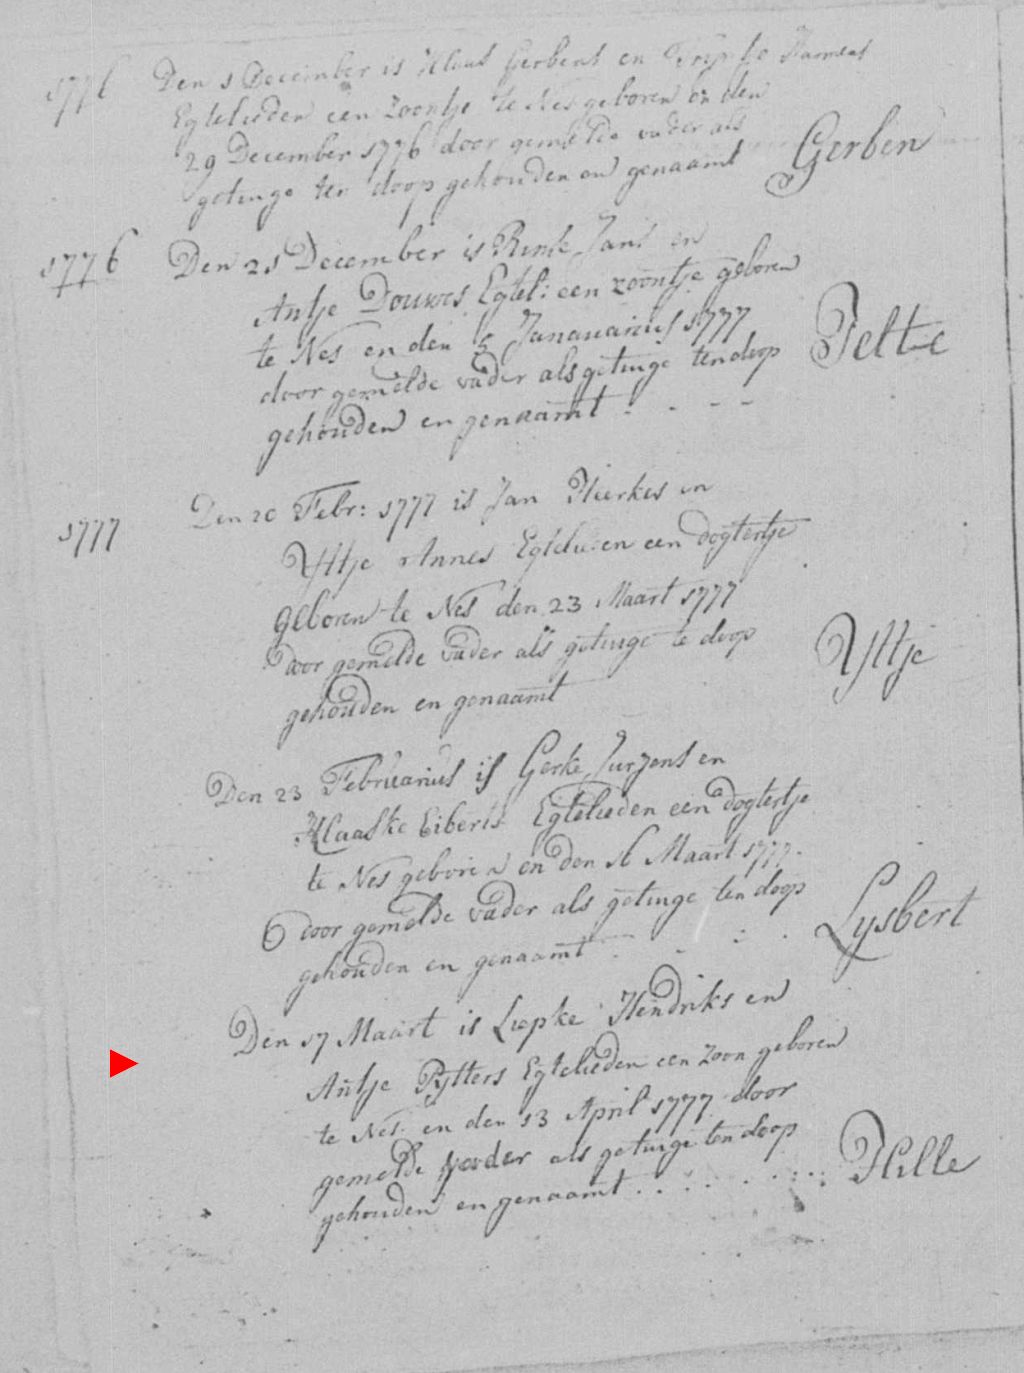 1776 Den 1 December is Klaas Gerbens en Trijntje Harmens
Egtelieden een zoontje te Nes geboren en den
29 December 1776 door gemelde vader als
getuige ten doop gehouden en genaamt Gerben
1776 Den 21 December is Rinse Jans en
Antje Douwes Egtel: een zoontje geboren
te Nes en den 5 Januarius 1777
door gemelde vader als getuige ten doop Jelte
gehouden en genaamt : - - -
1777 Den 20 Febr: 1777 is Jan Heerkes en
Yttje Annes Egteli: en een dogtertje
geboren te Nes den 23 Maart 1777
door gemelde vader als getuige te doop Yttje
gehouden en genaamt
Den 23 Februarius is Gerke Jurjens en
Klaaske Eiberts Egtelieden een dogtertje
te Nes geboren en den 16 Maart 1777.
door gemelde vader als getuige ten doop
gehouden en genaamt . - : . Lysbert
Den 17 Maart is Liepke Hendriks en
Antje Pytters Egtelieden een zoon geboren
te Nes en den 13 April 1777 door
gemelde vader als getuige ten doop
gehouden en genaamt . . . . . . . . : Hille